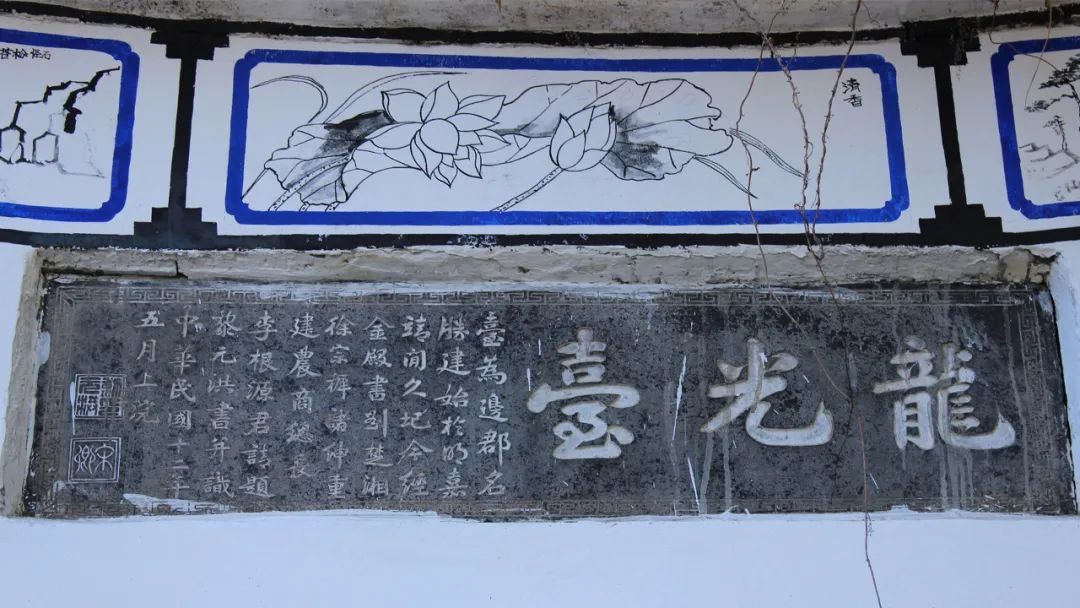 清香
龍光臺
臺為邊郡名
勝建始於明嘉
靖閒久圮今經
金殿書劉楚湘
徐宗穉諸紳重
建農商總長
李根源君請題
黎元洪書并識
中華民國十二年
五月上浣
宋卿